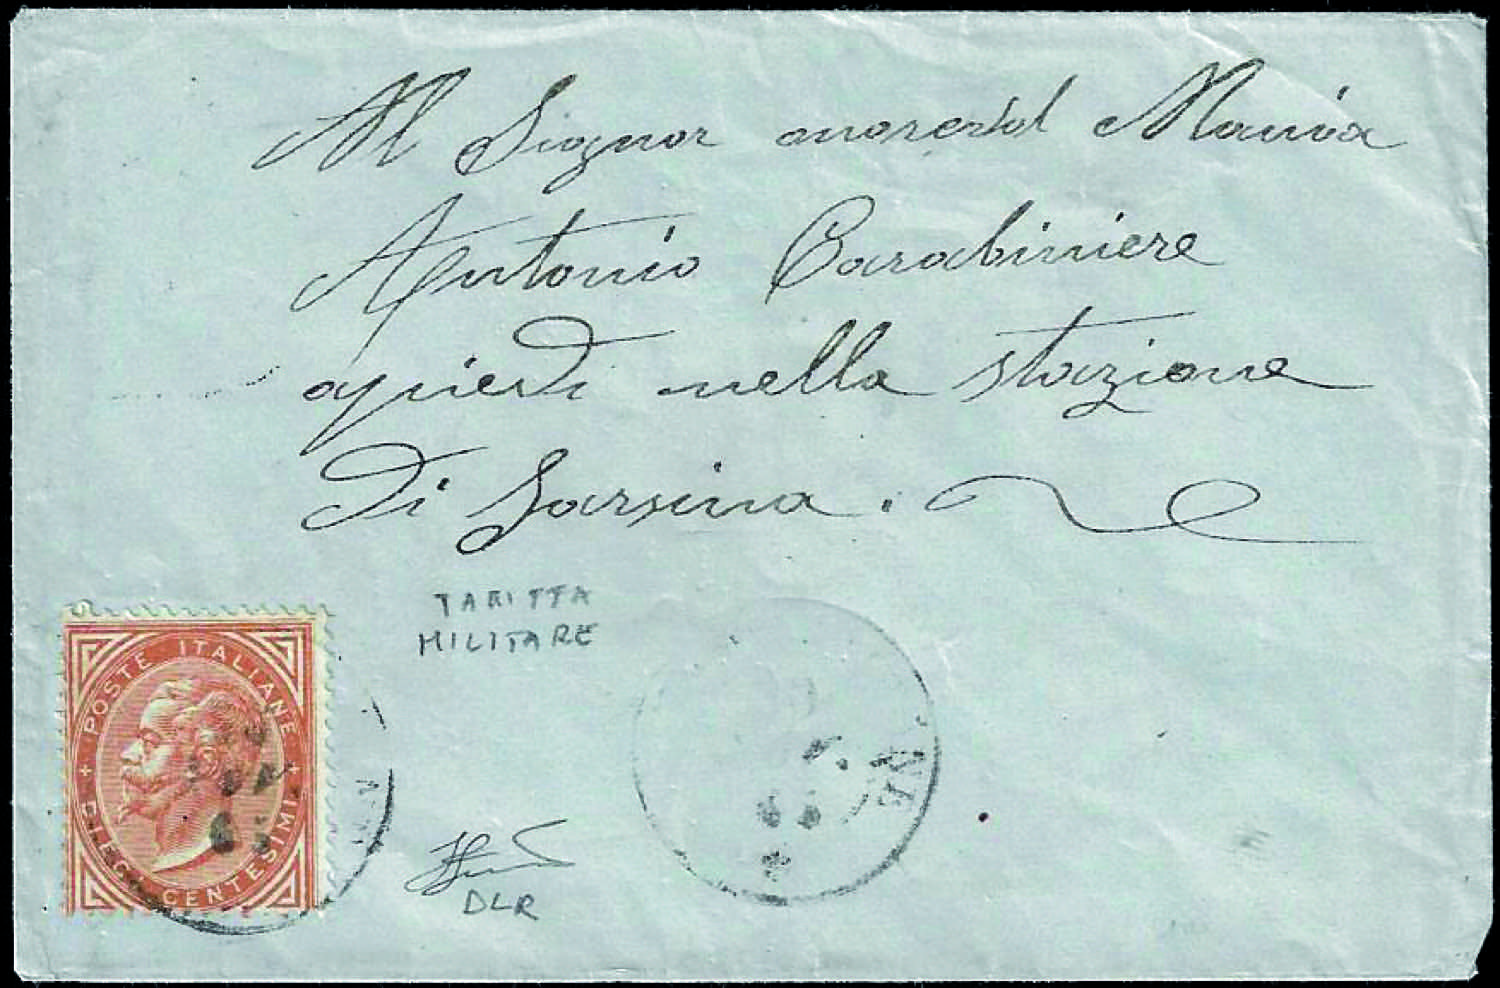 Al Signor Maria
Antonio Carabiniere
apiedi nella stazione
di Sarsina.
TARIFFA
MILITARE
POSTE ITALIANE
DIECI CENTESIMI
DLR